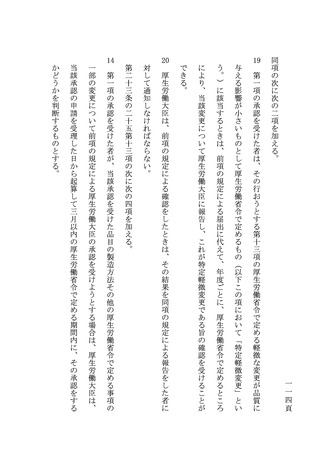 一一四頁
同項の次に次の二項を加える。
19 第一項の承認を受けた者は、その行おうとする第十三項の厚生労働省令で定める軽微な変更が品質に
与える影響が小さいものとして厚生労働省令で定めるもの（以下この項において「特定軽微変更」とい
う。）に該当するときは、前項の規定による届出に代えて、年度ごとに、厚生労働省令で定めるところ
により、当該変更について厚生労働大臣に報告し、これが特定軽微変更である旨の確認を受けることが
できる。
20 厚生労働大臣は、前項の規定による確認をしたときは、その結果を同項の規定による報告をした者に
対して通知しなければならない。
第二十三条の二十五第十三項の次に次の四項を加える。
14 第一項の承認を受けた者が、当該承認を受けた品目の製造方法その他の厚生労働省令で定める事項の
一部の変更について前項の規定による厚生労働大臣の承認を受けようとする場合は、厚生労働大臣は、
当該承認の申請を受理した日から起算して三月以内の厚生労働省令で定める期間内に、その承認をする
かどうかを判断するものとする。